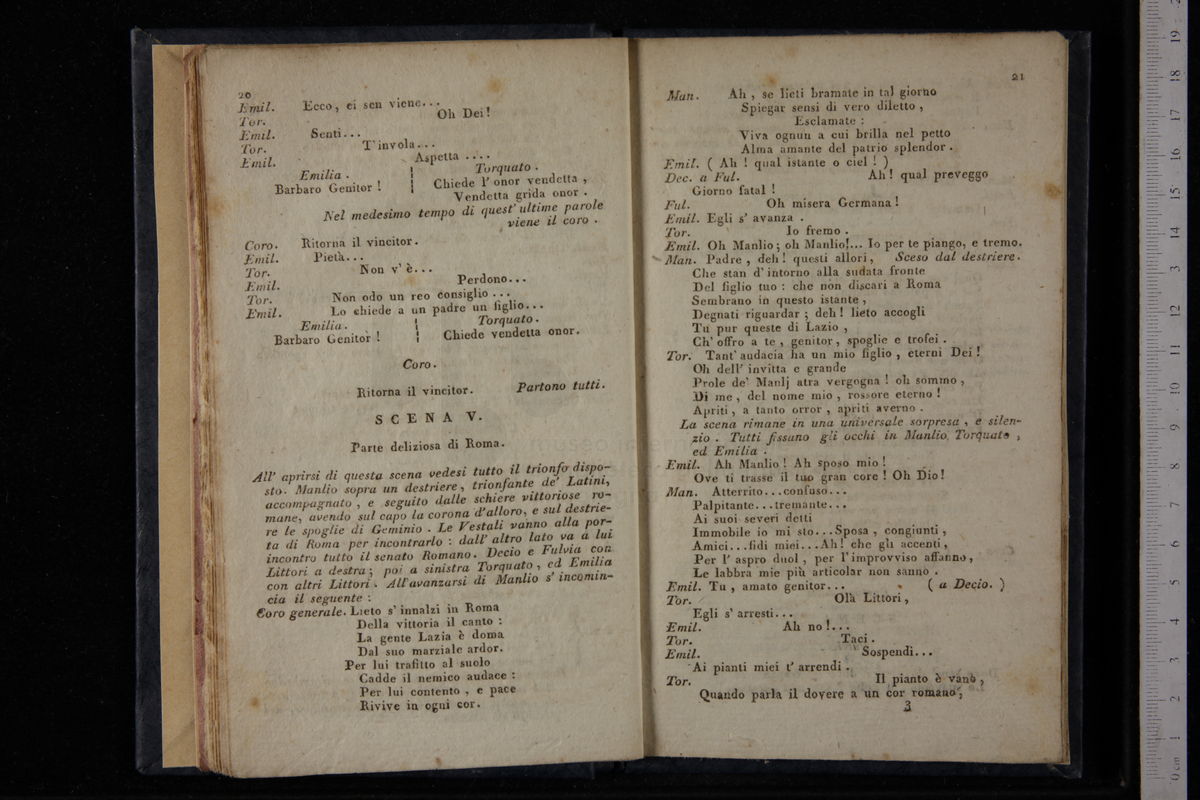 20
Emil. Ecco, ei sen viene...
Tor. Oh Dei!
Emil. Senti...
Tor. T'invola...
Emil. Aspetta ....
Emilia. Torquato.
Barbaro Genitor! Chiede l' onor vendetta,
Vendetta grida onor.
Nel medesimo tempo di quest' ultime parole
viene il coro.
Coro. Ritorna il vincitor.
Emil. Pietà...
Tor. Non v' è...
Emil. Perdono...
Tor. Non odo un reo consiglio ...
Emil. Lo chiede a un padre un figlio...
Emilia. Torquato.
Barbaro Genitor! Chiede vendetta onor.
Coro.
Ritorna il vincitor. Partono tutti.
SCENA V.
Parte deliziosa di Roma.
All' aprirsi di questa scena vedesi tutto il trionfo dispo-
sto. Manlio sopra un destriere, trionfante de' Latini,
accompagnato, e seguito dalle schiere vittoriose ro-
mane, avendo sul capo la corona d'alloro, e sul destrie-
re le spoglie di Geminio. Le Vestali vanno alla por-
ta di Roma per incontrarlo: dall' altro lato va a lui
incontro tutto il senato Romano. Decio e Fulvia con
Littori a destra; poi a sinistra Torquato, ed Emilia
con altri Littori. All'avanzarsi di Manlio s' incomin-
cia il seguente:
Coro generale. Lieto s' innalzi in Roma
Della vittoria il canto:
La gente Lazia è doma
Dal suo marziale ardor.
Per lui trafitto al suolo
Cadde il nemico audace:
Per lui contento, e pace
Rivive in ogni cor.
21
Man. Ah, se lieti bramate in tal giorno
Spiegar sensi di vero diletto,
Esclamate:
Viva ognun a cui brilla nel petto
Alma amante del patrio splendor.
Emil. ( Ah! qual istante o ciel! )
Dec. a Ful. Ah! qual preveggo
Giorno fatal!
Ful. Oh misera Germana!
Emil. Egli s' avanza.
Tor. Io fremo.
Emil. Oh Manlio; oh Manlio!... Io per te piango, e tremo.
Man. Padre, deh! questi allori, Sceso dal destriere.
Che stan d' intorno alla sudata fronte
Del figlio tuo: che non discari a Roma
Sembrano in questo istante,
Degnati riguardar; deh! lieto accogli
Tu pur queste di Lazio,
Ch' offro a te, genitor, spoglie e trofei.
Tor. Tant' audacia ha un mio figlio, eterni Dei!
Oh dell' invitta e grande
Prole de' Manlj atra vergogna! oh sommo,
Di me, del nome mio, rossore eterno!
Apriti, a tanto orror, apriti averno.
La scena rimane in una universale sorpresa, e silen-
zio. Tutti fissano gli occhi in Manlio, Torquato,
ed Emilia.
Emil. Ah Manlio! Ah sposo mio!
Ove ti trasse il tuo gran core! Oh Dio!
Man. Atterrito...confuso...
Palpitante...tremante...
Ai suoi severi detti
Immobile io mi sto...Sposa, congiunti,
Amici...fidi miei...Ah! che gli accenti,
Per l' aspro duol, per l'improvviso affanno,
Le labbra mie più articolar non sanno.
Emil. Tu, amato genitor... ( a Decio. )
Tor. Olà Littori,
Egli s' arresti...
Emil. Ah no!...
Tor. Taci.
Emil. Sospendi...
Ai pianti miei t' arrendi.
Tor. Il pianto è vano,
Quando parla il dovere a un cor romano,
3